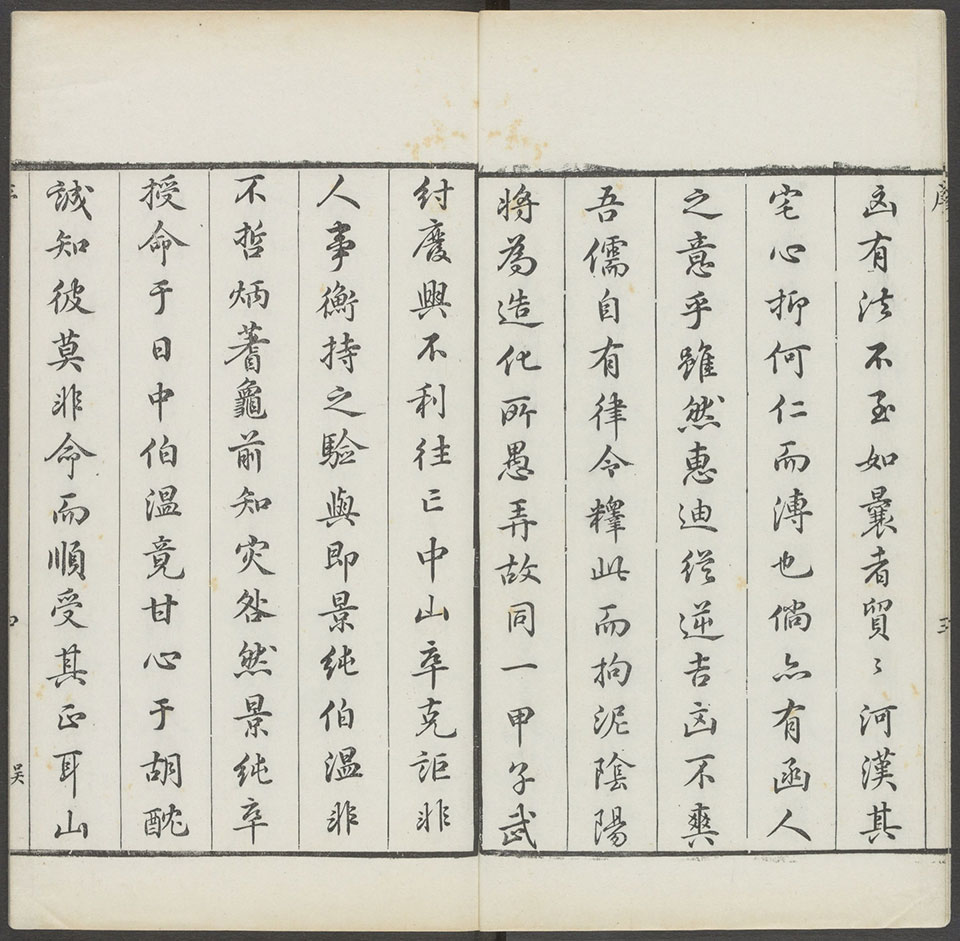 三
凶有法不至如曩者貿〻河漢其
宅心抑何仁而溥也倘亦有函人
之意乎雖然惠迪從逆吉凶不爽
吾儒自有律令釋此而拘泥陰陽
將為造化所愚弄故同一甲子武
紂廢興不利往亡中山卒克詎非
人事衡持之驗與即景純伯溫非
不哲炳蓍龜前知灾咎然景純卒
授命于日中伯溫竟甘心于胡酖
誠知彼莫非命而順受其正耳山
吴